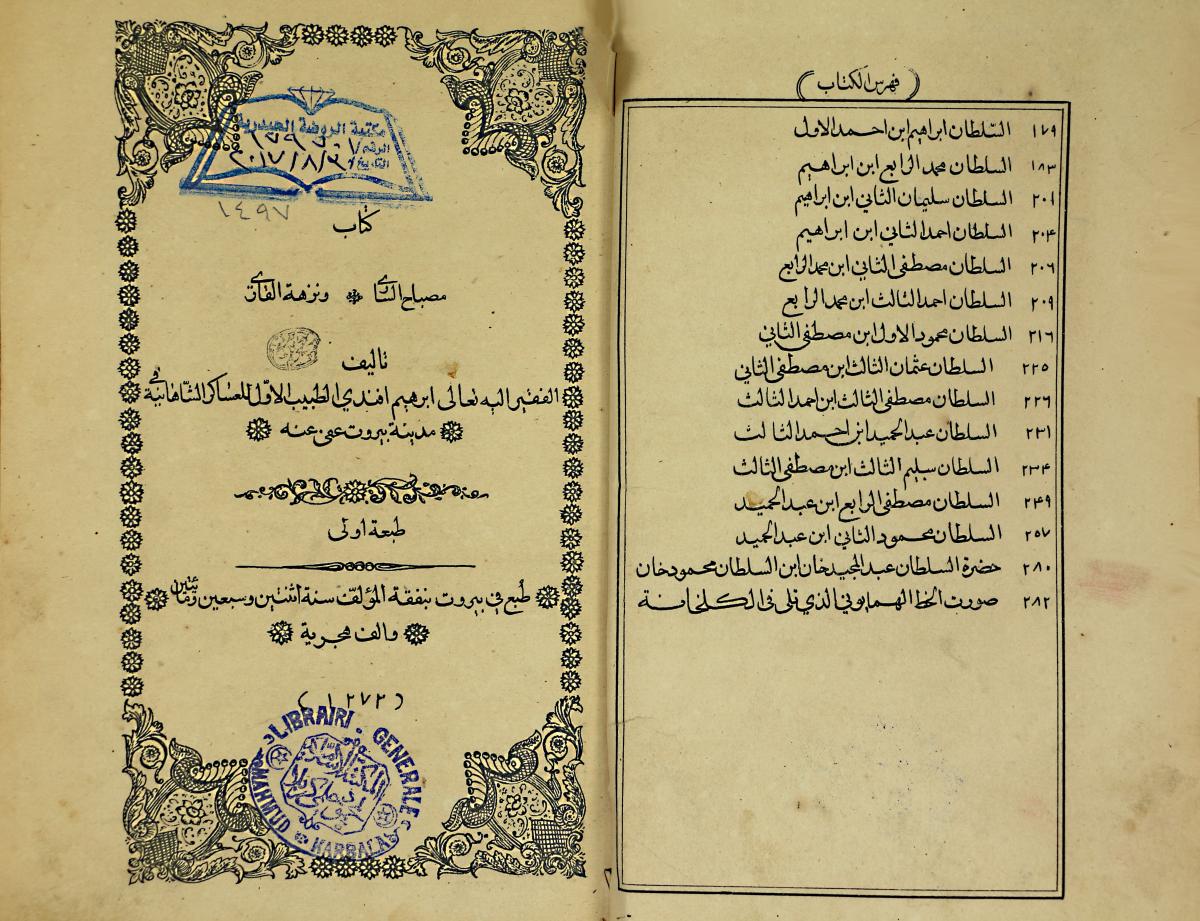 فهرس الكتاب
١٧٩ السلطان ابراهيم ابن احمد الاول
١٨٣ السلطان محمد الرابع ابن ابراهيم
٢٠١ السلطان سليمان الثاني ابن ابراهيم
٢٠٤ السلطان احمد الثاني ابن ابراهيم
٢٠٦ السلطان مصطفى الثاني ابن محمد الرابع
٢٠٩ السلطان احمد الثالث ابن محمد الرابع
٢١٦ السلطان محمود الاول ابن مصطفى الثاني
٢٢٥ السلطان عثمان الثالث ابن مصطفى الثاني
٢٢٦ السلطان مصطفى الثالث ابن احمد الثالث
٢٣١ السلطان عبد الحميد ابن احمد الثالث
٢٣٤ السلطان سليم الثالث ابن مصطفى الثالث
٢٤٩ السلطان مصطفى الرابع ابن عبد الحميد
٢٥٧ السلطان محمود الثاني ابن عبد الحميد
٢٨٠ حضرة السلطان عبد المجيد خان ابن السلطان محمود خان
٢٨٢ صورت الخط الهمايوني الذي تلى في الكلخانة
مكتبة الروضة الحيدرية
الرقم/
التاريخ/ ٢٠١٧/٨/٢
١٤٩٧
كتاب
مصباح الساري ونزهة القاري
تاليف
الفقير اليه تعالى ابرهيم افندي الطبيب الاول للعساكر الشاهانية في
مدينة بيروت عفى عنه
طبعة اولى
طبع في بيروت بنفقة المؤلف سنة اثنتين وسبعين ومائتين
والف هجرية
(١٢٧٢)
LIBRAIRI GENERALE
MAHMUD
KARBALA